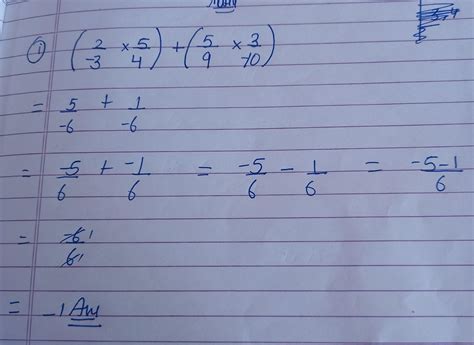 ① (2/-3 × 5/4) + (5/9 × 3/-10)
= 5/-6 + 1/-6
= -5/6 + -1/6 = -5/6 - 1/6 = -5-1/6
= -6/6
= -1 Ans